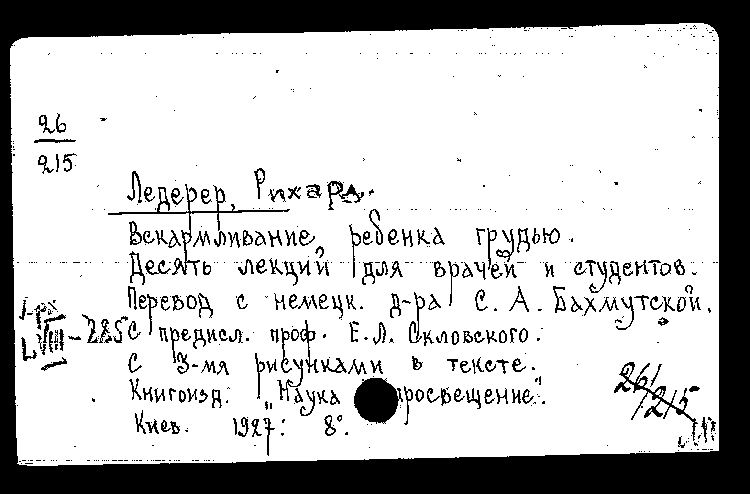 26
215
Ледерер, Рихард.
Вскармливание ребенка грудью.
Десять лекций для врачей и студентов.
Перевод с немецк. д-ра С. А. Бахмутской.
VIII - 285
с предисл. проф. Е. Л. Скловского.
с 3-мя рисунками в тексте.
Книгоизд. "Наука просвещение".
Киев. 1927. 8°.
26/215